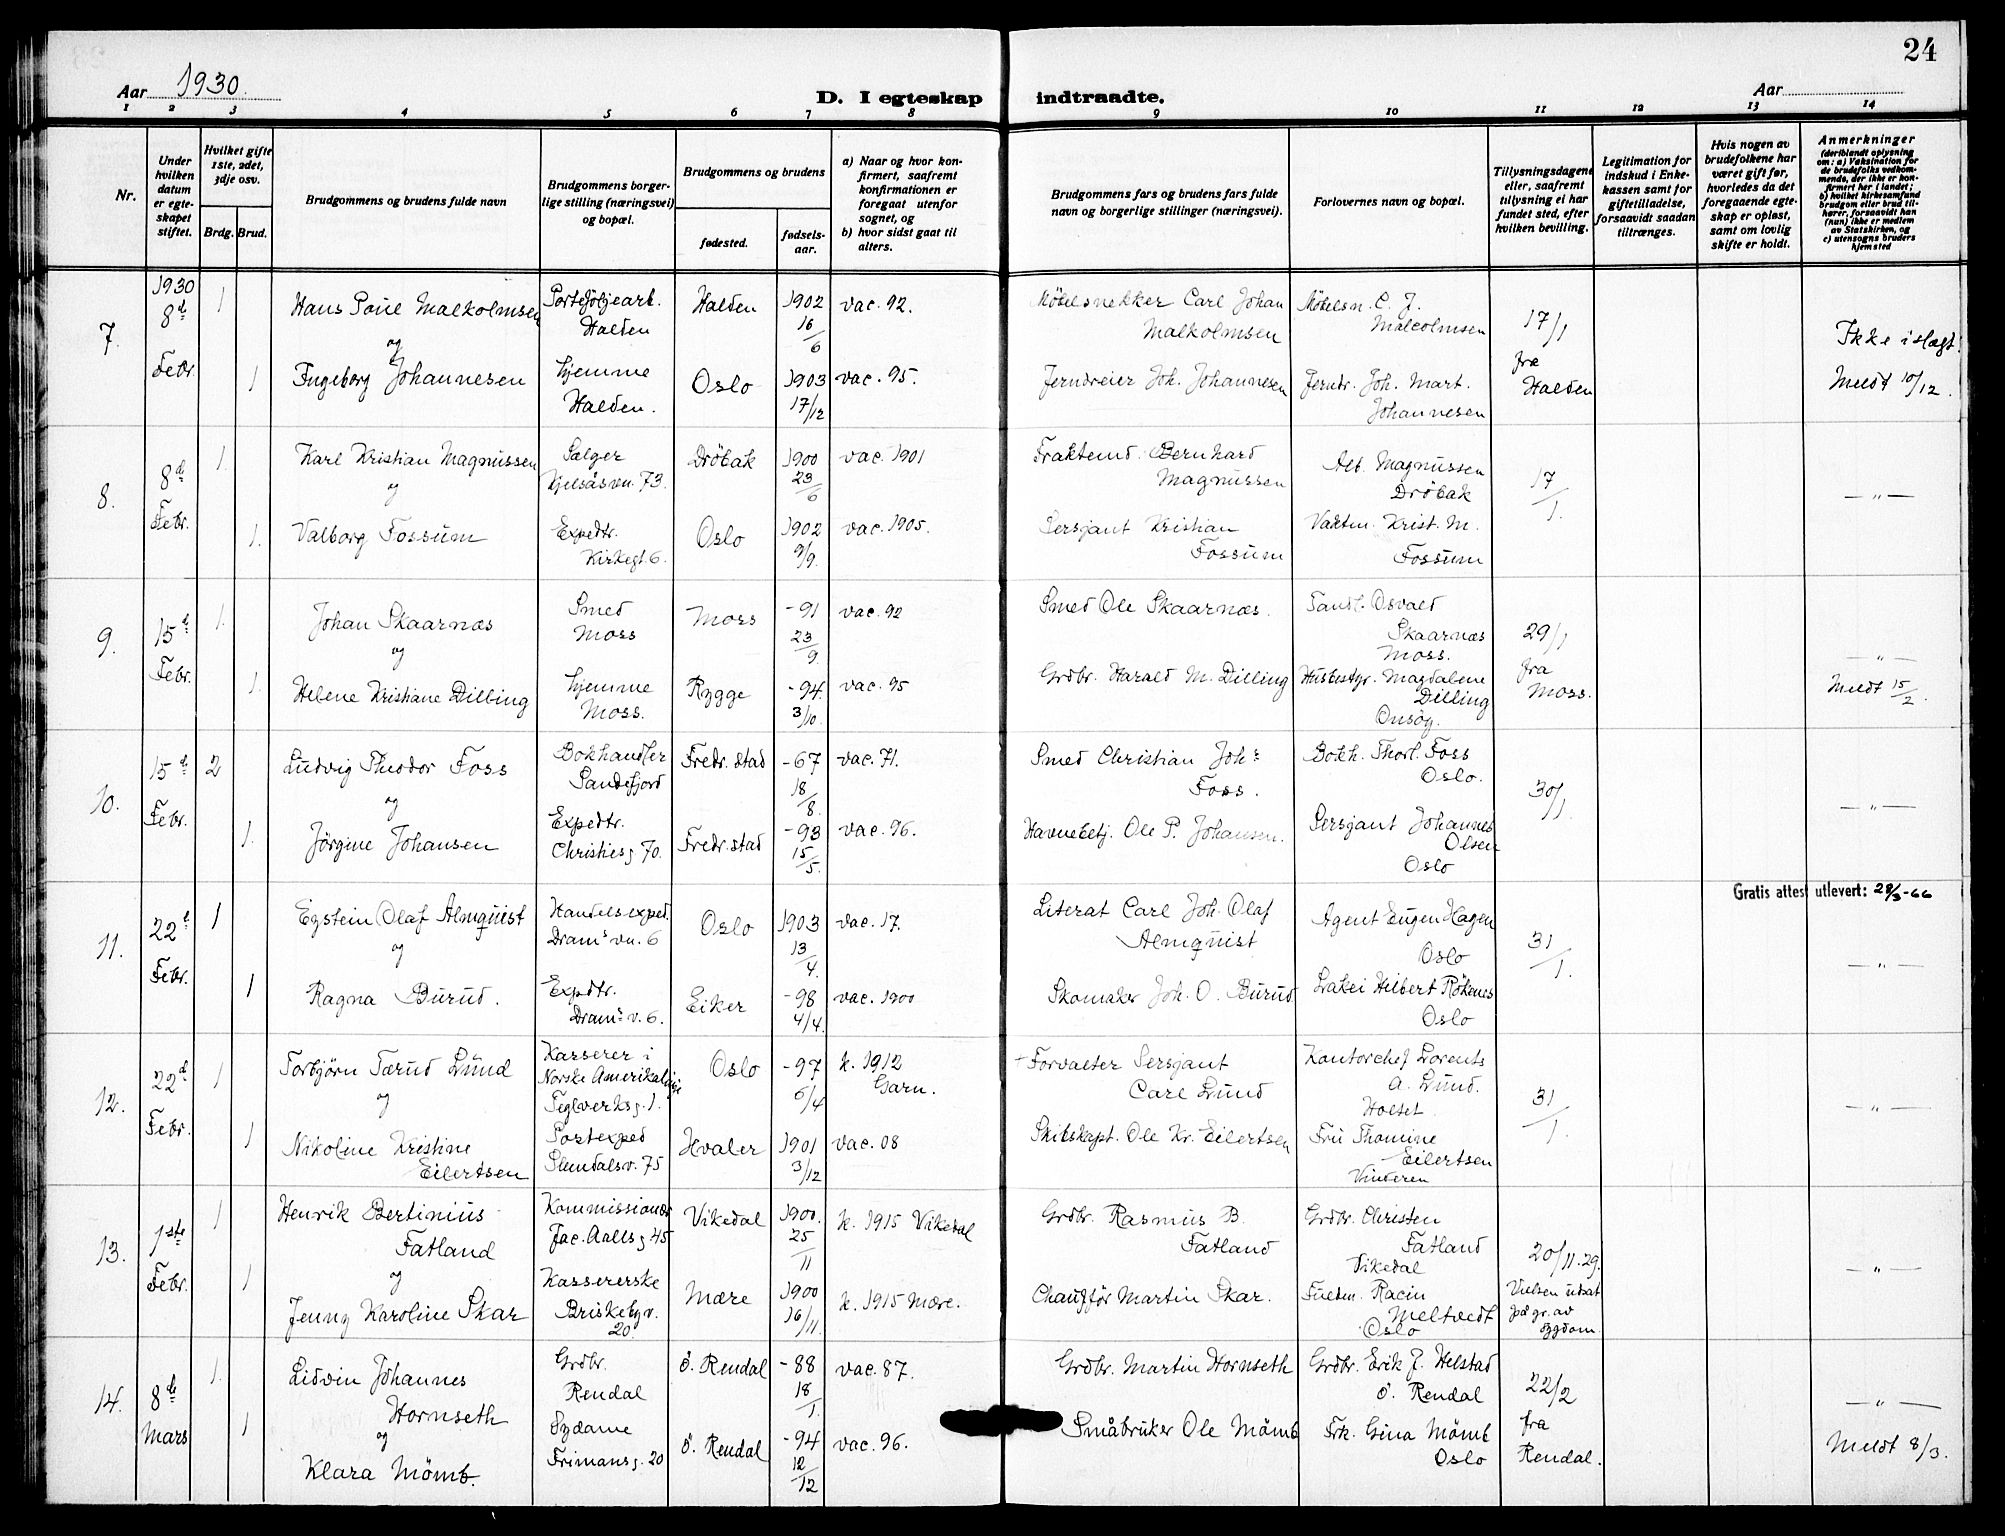 24
Aar 1930.
D. I egteskap indtraadte.
Aar
1 2 3 4 5 6 7 8 9 10 11 12 13 14
Nr.
Under hvilken datum er egteskapet stiftet.
Hvilket gifte 1ste, 2det, 3dje osv.
Brdg. Brud.
Brudgommens og brudens fulde navn
Brudgommens borgerlige stilling (næringsvei) og bopæl.
Brudgommens og brudens
fødested.
fødselsaar.
a) Naar og hvor konfirmert, saafremt konfirmationen er foregaat utenfor sognet, og
b) hvor sidst gaat til alters.
Brudgommens fars og brudens fars fulde navn og borgerlige stillinger (næringsvei).
Forlovernes navn og bopæl.
Tillysningsdagene eller, saafremt tillysning ei har fundet sted, efter hvilken bevilling.
Legitimation for indskud i Enkekassen samt for giftetilladelse, forsaavidt saadan tiltrænges.
Hvis nogen av brudefolkene har været gift før, hvorledes da det foregaaende egteskap er opløst, samt om lovlig skifte er holdt.
Anmerkninger
(deriblandt oplysning om: a) Vaksination for de brudefolks vedkommende, der ikke er konfirmert her i landet; b) hvilket kirkesamfund brudgom eller brud tilhører, forsaavidt han (hun) ikke er medlem av Statskirken, og c) utensogns bruders hjemsted
7. 1930 8d Febr. 1
Hans Poul Malkolmsen
Porteføljearb. Halden
Halden
1902 16/6
vac. 92.
Møbelsnekker Carl Johan Malkolmsen
Møbelsn. C. J. Malcolmsen
17/1 fra Halden
Ikke i slægt!
og
1 Ingeborg Johannesen
hjemme Halden.
Oslo
1903 17/12
vac. 95.
Jerndreier Joh. Johannesen
Jerndr. Joh. Mart. Johannesen
Meldt 10/12.
8. 8d Febr. 1.
Karl Kristian Magnussen
Sælger Kjelsåsvn. 73.
Drøbak
1900 23/6
vac. 1901
Fraktemd. Bernhard Magnussen
Alb. Magnussen Drøbak
17/1.
— " —
og
1. Valborg Fossum
Expedtr. Kirkegt. 6.
Oslo
1902 9/9.
vac. 1905.
Sersjant Kristian Fossum
Vaktm. Krist. M. Fossum
9. 15d Febr. 1.
Johan Skaarnæs
Smed Moss
Moss
-91 23/9.
vac. 92
Smed Ole Skaarnæs.
Tandl. Osvald Skaarnæs Moss.
29/1 fra Moss.
— " —
og
1. Helene Kristiane Dilling
hjemme Moss.
Rygge
-94. 3/10.
vac. 95
Grdbr. Harald M. Dilling
Husbestyr. Magdalene Dilling Onsøy.
Meldt 15/2.
10. 15d Febr. 2
Ludvig Theodor Foss
Bokhandler Sandefjord
Fredr.stad
-67 18/8.
vac. 71.
Smed Christian Joh. Foss.
Bokh. Thorl. Foss Oslo.
30/1.
— " —
og
1. Jørgine Johansen
Expedtr. Christiesg 70.
Fredr.stad
-93 15/5.
vac. 96.
Havnebetj. Ole P. Johansen.
Sersjant Johannes Olsen Oslo
Gratis attest utlevert: 28/3-66
11. 22d Febr. 1
Egstein Olaf Almquist
Handelsexped. Dramsvn. 6
Oslo
1903 13/4.
vac. 17.
Literat Carl Joh. Olaf Almquist
Agent Eugen Hagen Oslo
31/1.
— " —
og
1 Ragna Burud.
Expdtr. Dramsv. 6.
Eiker
-98 4/4.
vac. 1900
Skomaker Joh. O. Burud
Lakei Hilbert Røkenes Oslo
12. 22d Febr. 1
Torbjørn Tærud Lund
Kasserer i Norske Amerikalinje Teglverksg. 1.
Oslo
-97 6/4
k. 1912 Garn.
Forvalter Sersjant Carl Lund
Kontorchef Lorents A. Lund. Holset.
31/1.
— " —
og
1 Nikoline Kristine Eilertsen
Postexped Slemdalsv. 75
Hvaler
1901 3/12
vac. 08
Skibskapt. Ole Kr. Eilertsen
Fru Thomine Eilertsen Vinderen
13. 1ste Febr. 1
Henrik Bertinius Fatland
Kommissionær Jac. Aallsg 45
Vikedal
1900. 25/11
k. 1915 Vikedal
Grdbr. Rasmus B. Fatland
Grdbr. Christen Fatland Vikedal
20/11.29.
Vielsen utsat på gr. av sygdom.
— " —
og
1 Jenny Karoline Skar
Kassererske Briskebyv. 20.
Mære
1900 16/11.
k. 1915 Mære.
Chauffør Martin Skar.
Racin Meltvedt Oslo
14. 8de Mars 1.
Lidvin Johannes Hornseth
Grdbr. Rendal
Ø. Rendal
-88 18/1.
vac. 87.
Grdbr. Martin Hornseth
Grdbr. Erik J. Helstad Ø. Rendal
22/2 fra Rendal.
— " —
og
1 Klara Mømb.
Sydame Frimansg. 20
Ø. Rendal
-94 12/12
vac. 96.
Småbruker Ole Mømb
Frk. Gina Mømb Oslo
Meldt 8/3.